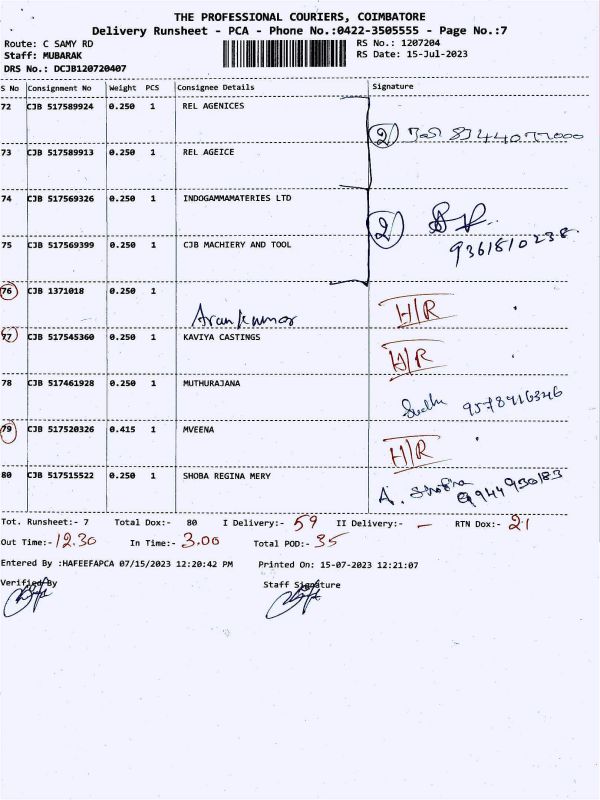 THE PROFESSIONAL COURIERS, COIMBATORE
Delivery Runsheet - PCA - Phone No.:0422-3505555 - Page No.:7
Route: C SAMY RD RS No.: 1207204
Staff: MUBARAK RS Date: 15-Jul-2023
DRS No.: DCJB120720407
S No Consignment No Weight PCS Consignee Details Signature
72 CJB 517589924 0.250 1 REL AGENICES
②
73 CJB 517589913 0.250 1 REL AGEICE
74 CJB 517569326 0.250 1 INDOGAMMAMATERIES LTD
②
75 CJB 517569399 0.250 1 CJB MACHIERY AND TOOL
9361810238
76 CJB 1371018 0.250 1
Arunkumar H/R
77 CJB 517545360 0.250 1 KAVIYA CASTINGS
H/R
78 CJB 517461928 0.250 1 MUTHURAJANA
Sudha 9578916346
79 CJB 517520326 0.415 1 MVEENA
H/R
80 CJB 517515522 0.250 1 SHOBA REGINA MERY
A. Shobna
Tot. Runsheet:- 7 Total Dox:- 80 I Delivery:- 59 II Delivery:- — RTN Dox:- 21
Out Time:- 12.30 In Time:- 3.00 Total POD:- 35
Entered By :HAFEEFAPCA 07/15/2023 12:20:42 PM Printed On: 15-07-2023 12:21:07
Verified By Staff Signature